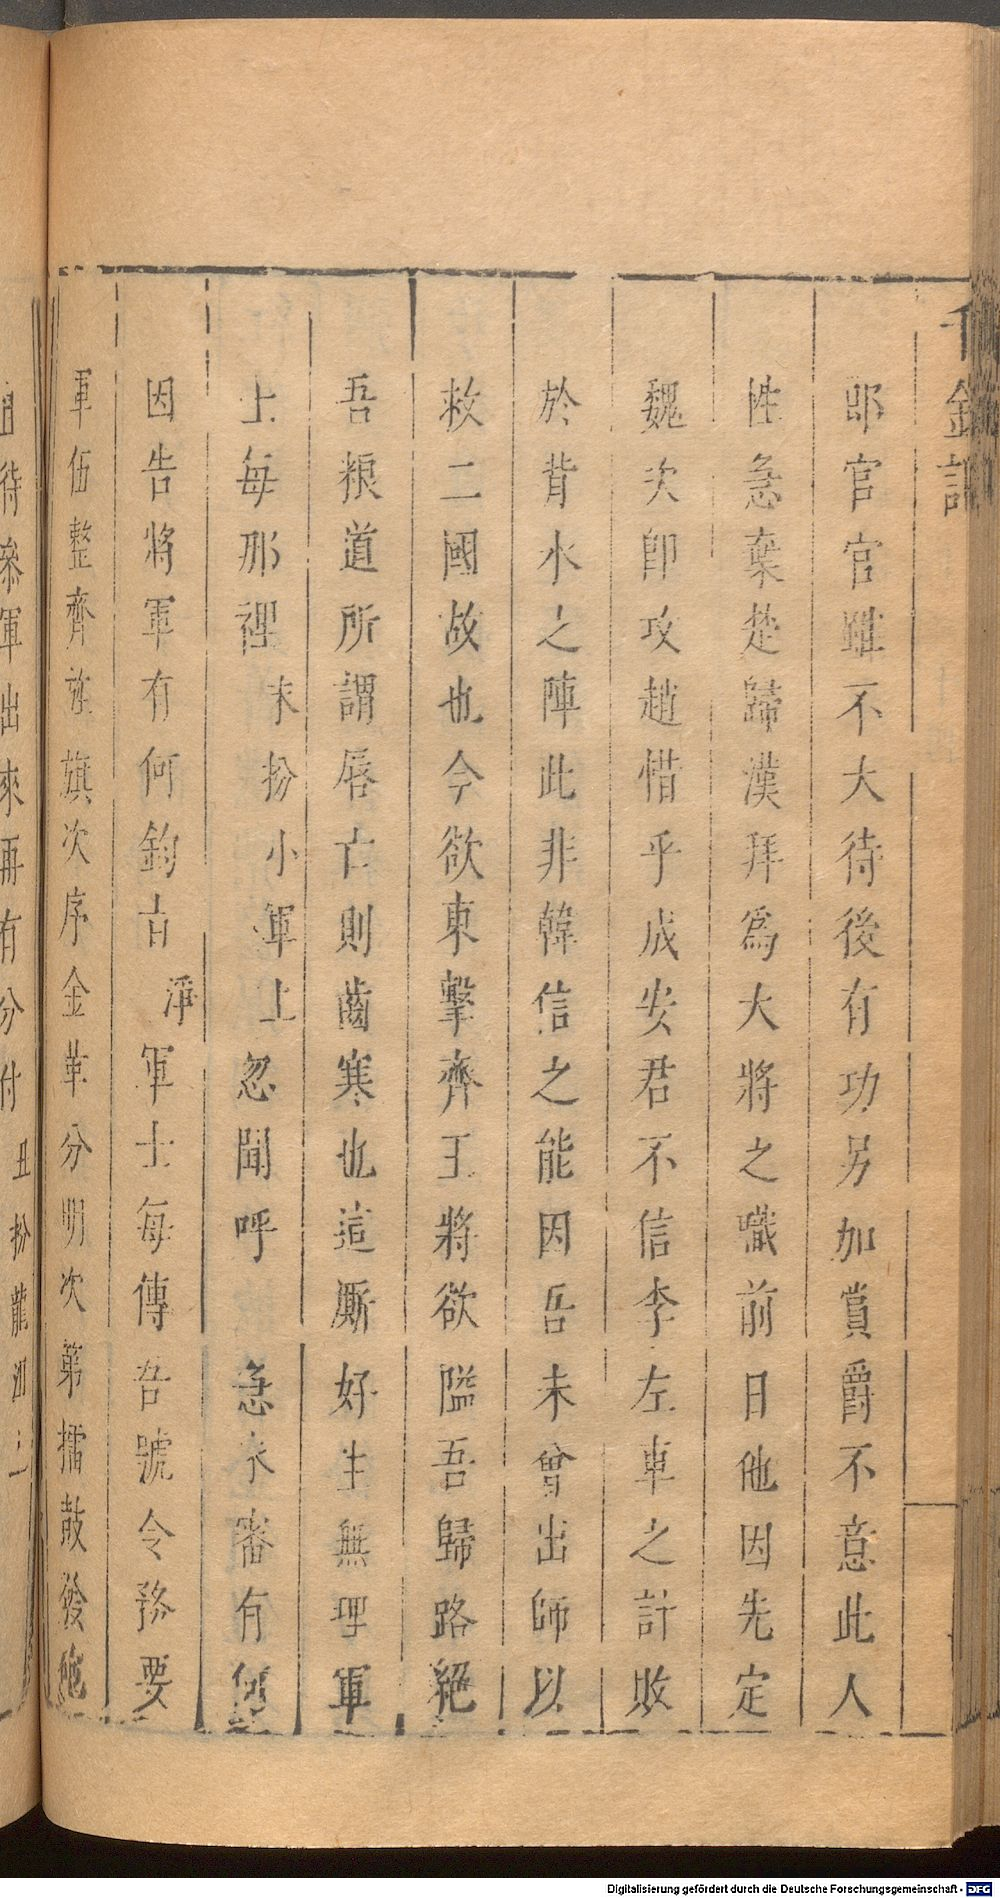 千金記
郎官官雖不大待後有功另加賞爵不意此人
性急棄楚歸漢拜爲大將之職前日他因先定
魏次即攻趙惜乎成安君不信李左車之計敗
於背水之陣此非韓信之能因吾未曾出師以
救二國故也今欲東擊齊王將欲隘吾歸路絕
吾粮道所謂唇亡則齒寒也這厮好生無理軍
上每那裡末扮小軍上忽聞呼急未審有何
因告將軍有何鈞旨淨軍士每傳吾號令務要
軍伍整齊旌旗次序金革分明次第擂鼓後炮
待叅軍出來再有分付丑扮龍沮上
Digitalisierung gefördert durch die Deutsche Forschungsgemeinschaft - DFG